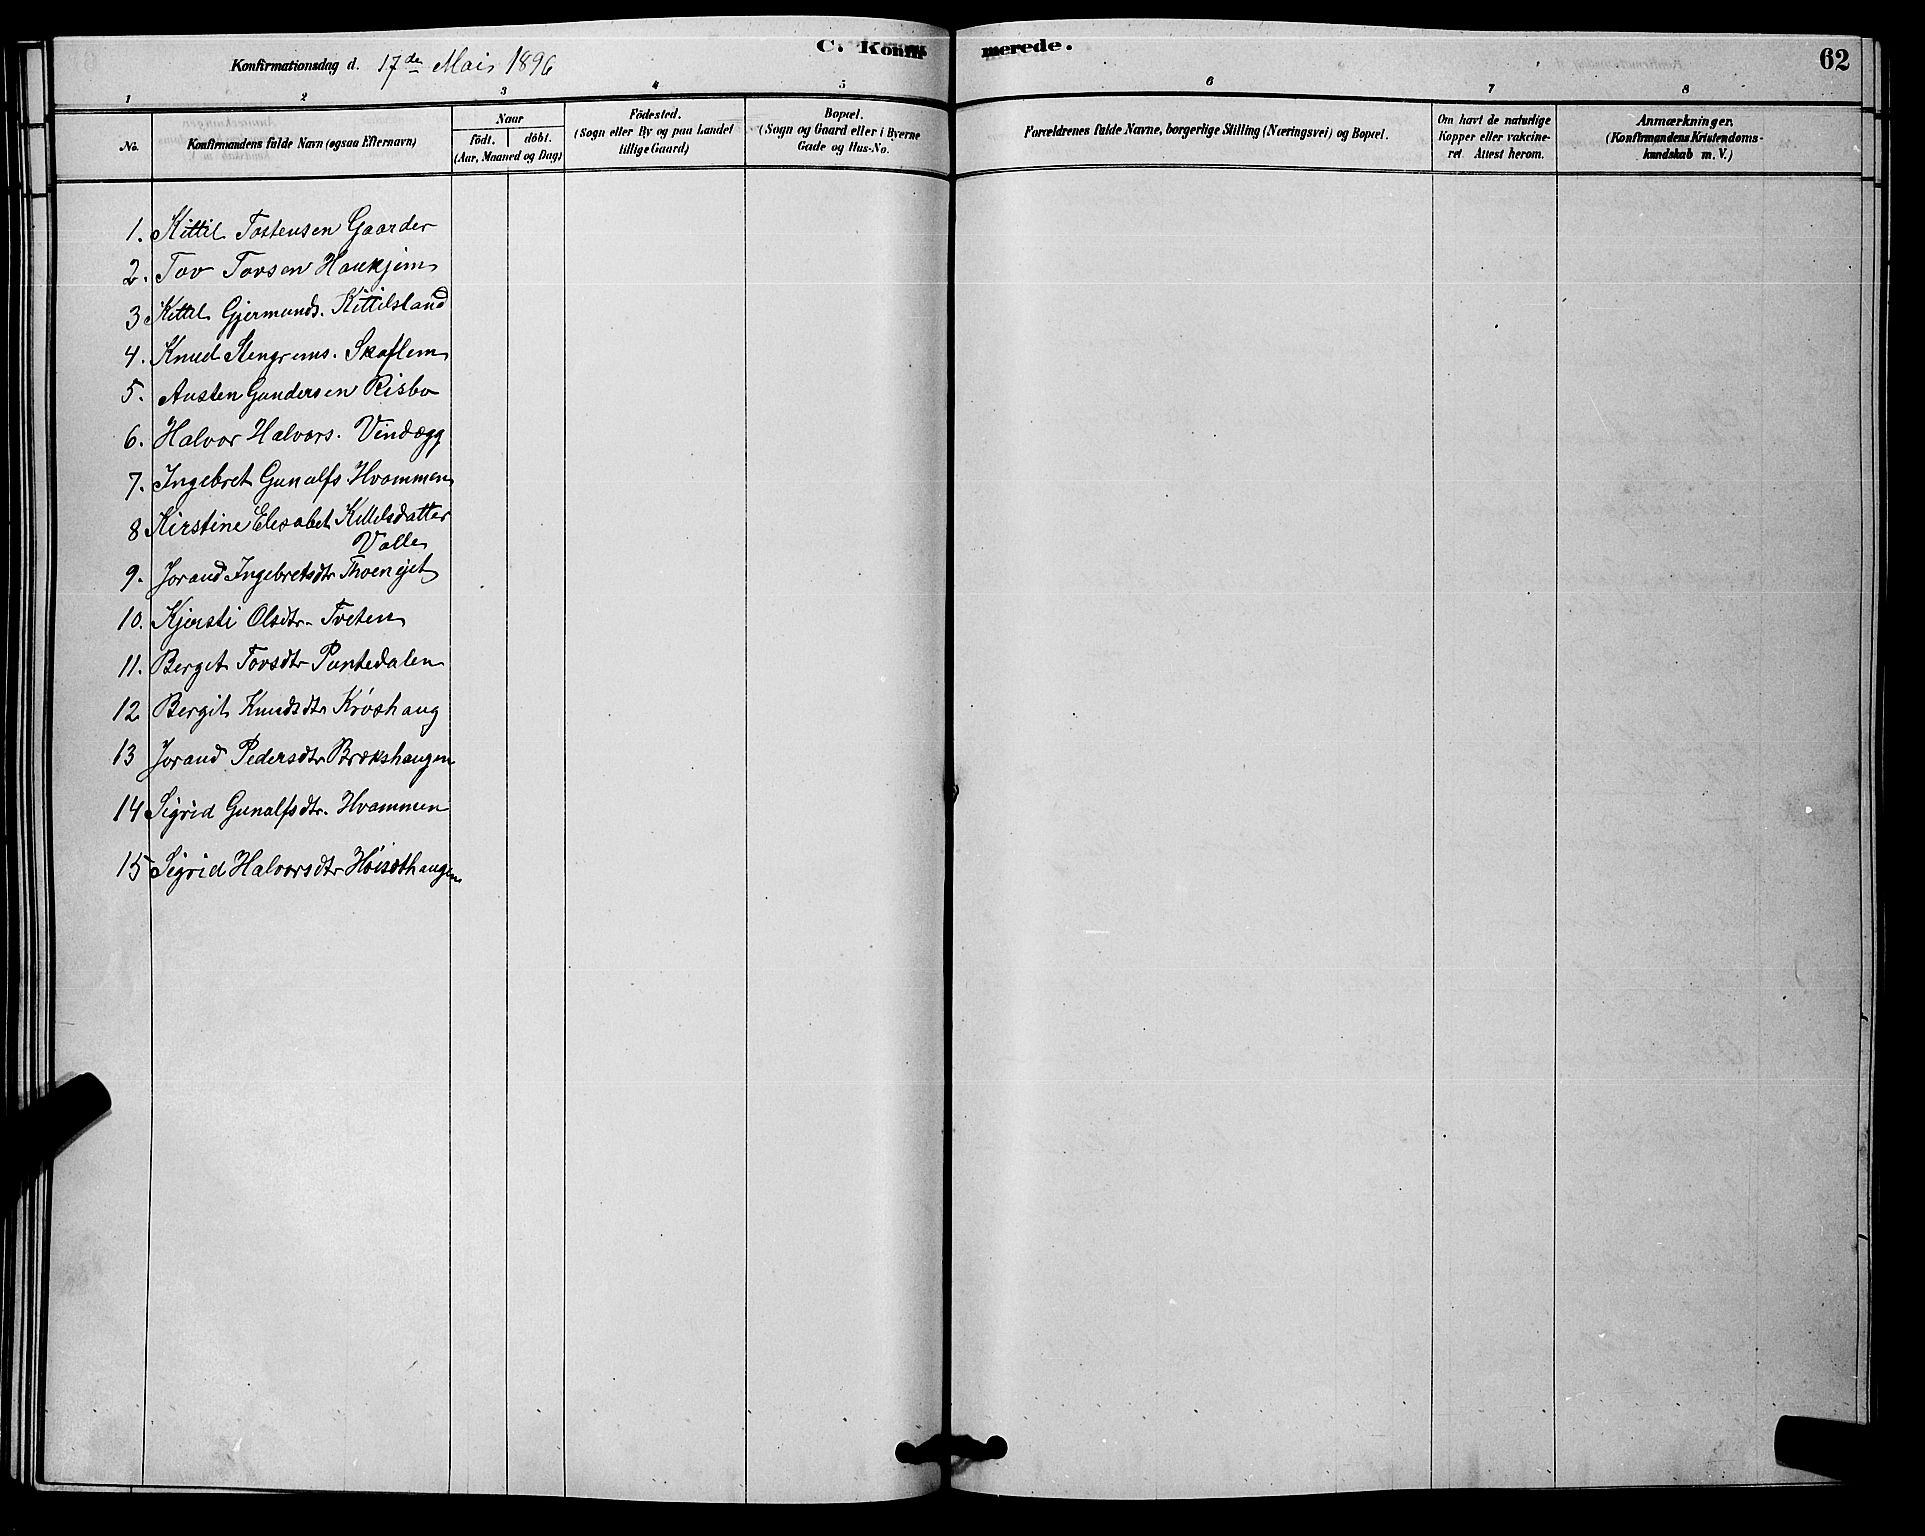 C. Konfir merede.
62
Konfirmationsdag d. 17de Mai 1896
1 2 3 4 5 6 7 8
No.
Konfirmandens fulde Navn (ogsaa Efternavn)
Naar
födt. döbt.
(Aar, Maaned og Dag)
Födested.
(Sogn eller By og paa Landet
tillige Gaard)
Bopæl.
(Sogn og Gaard eller i Byerne
Gade og Hus-No.
Forældrenes fulde Navne, borgerlige Stilling (Næringsvei) og Bopæl.
Om havt de naturlige
Kopper eller vakcine-
ret Attest herom.
Anmærkninger.
(Konfirmandens Kristendoms-
kundskab m. V.)
1. Kittil Tostensen Gaarder
2. Tov Tovsen Haukjem
3 Kittil Gjermunds. Kittilsland
4. Knud Stengrems. Skoflem
5. Austen Gundersen Risbo
6. Halvor Halvors. Vindægg
7. Ingebret Gunulfs. Hvammen
8 Kirstine Elesabet Kittilsdatter
Valle
9. Joraud Ingebretsdtr
10. Kjersti Olsdtr. Tveten
11. Berget Tovsdtr Puntedalen
12 Bergit Knudsdtr Kröshaug
13 Joraud Pedersdtr Brækshaugen
14 Sigrid Gunulfsdtr. Hvammen
15 Sigrid Halvorsdtr Höisæthaugen